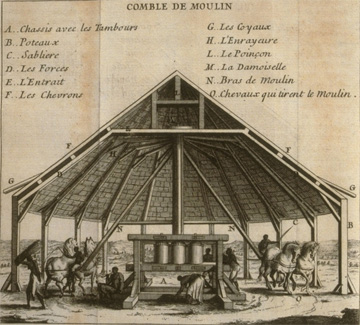 COMBLE DE MOULIN
A.. Chassis avec les Tambours
B.. Poteaux
C.. Sabliere
D.. Les Forces
E.. L'Entrait
F.. Les Chevrons
G. Les Coyaux
H.. L'Enrayeure
L.. Le Poinçon
M.. La Damoiselle
N.. Bras de Moulin
O.. Chevaux qui tirent le Moulin.
L
F
F
E
D
H
D
G
G
N
N
C
B
A
O